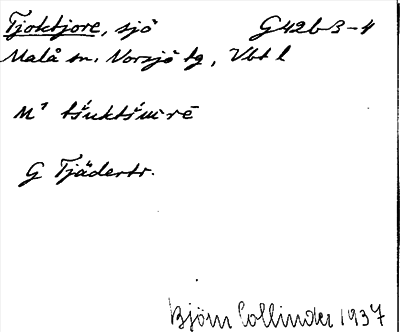 Tjoktjore, sjö G42b3-4
Malå sn. Norsjö tg, Vbt l
M¹
G Tjädertr.
Björn Collinder 1937